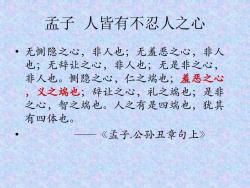 孟子 人皆有不忍人之心
• 无恻隐之心，非人也；无羞恶之心，非人
也；无辞让之心，非人也；无是非之心，
非人也。恻隐之心，仁之端也；羞恶之心
，义之端也；辞让之心，礼之端也；是非
之心，智之端也。人之有是四端也，犹其
有四体也。
• ——《孟子.公孙丑章句上》